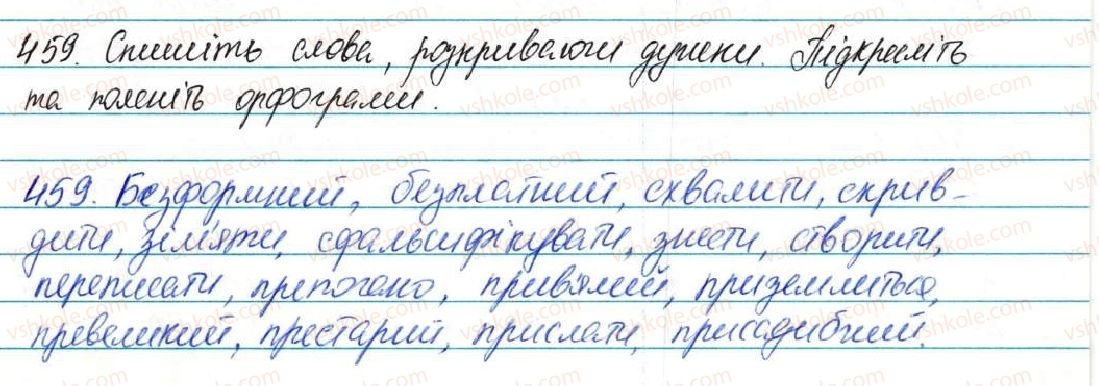 459. Спишіть слова, розкриваючи дужки. Підкресліть
та поясніть орфограми.
459. Безформний, безплатний, схвалити, скрив-
дити, зім'яти, сфальсифікувати, знести, створити,
переписати, препогано, прив'ялий, приземлиться,
превеликий, престарий, прислати, присадибний.